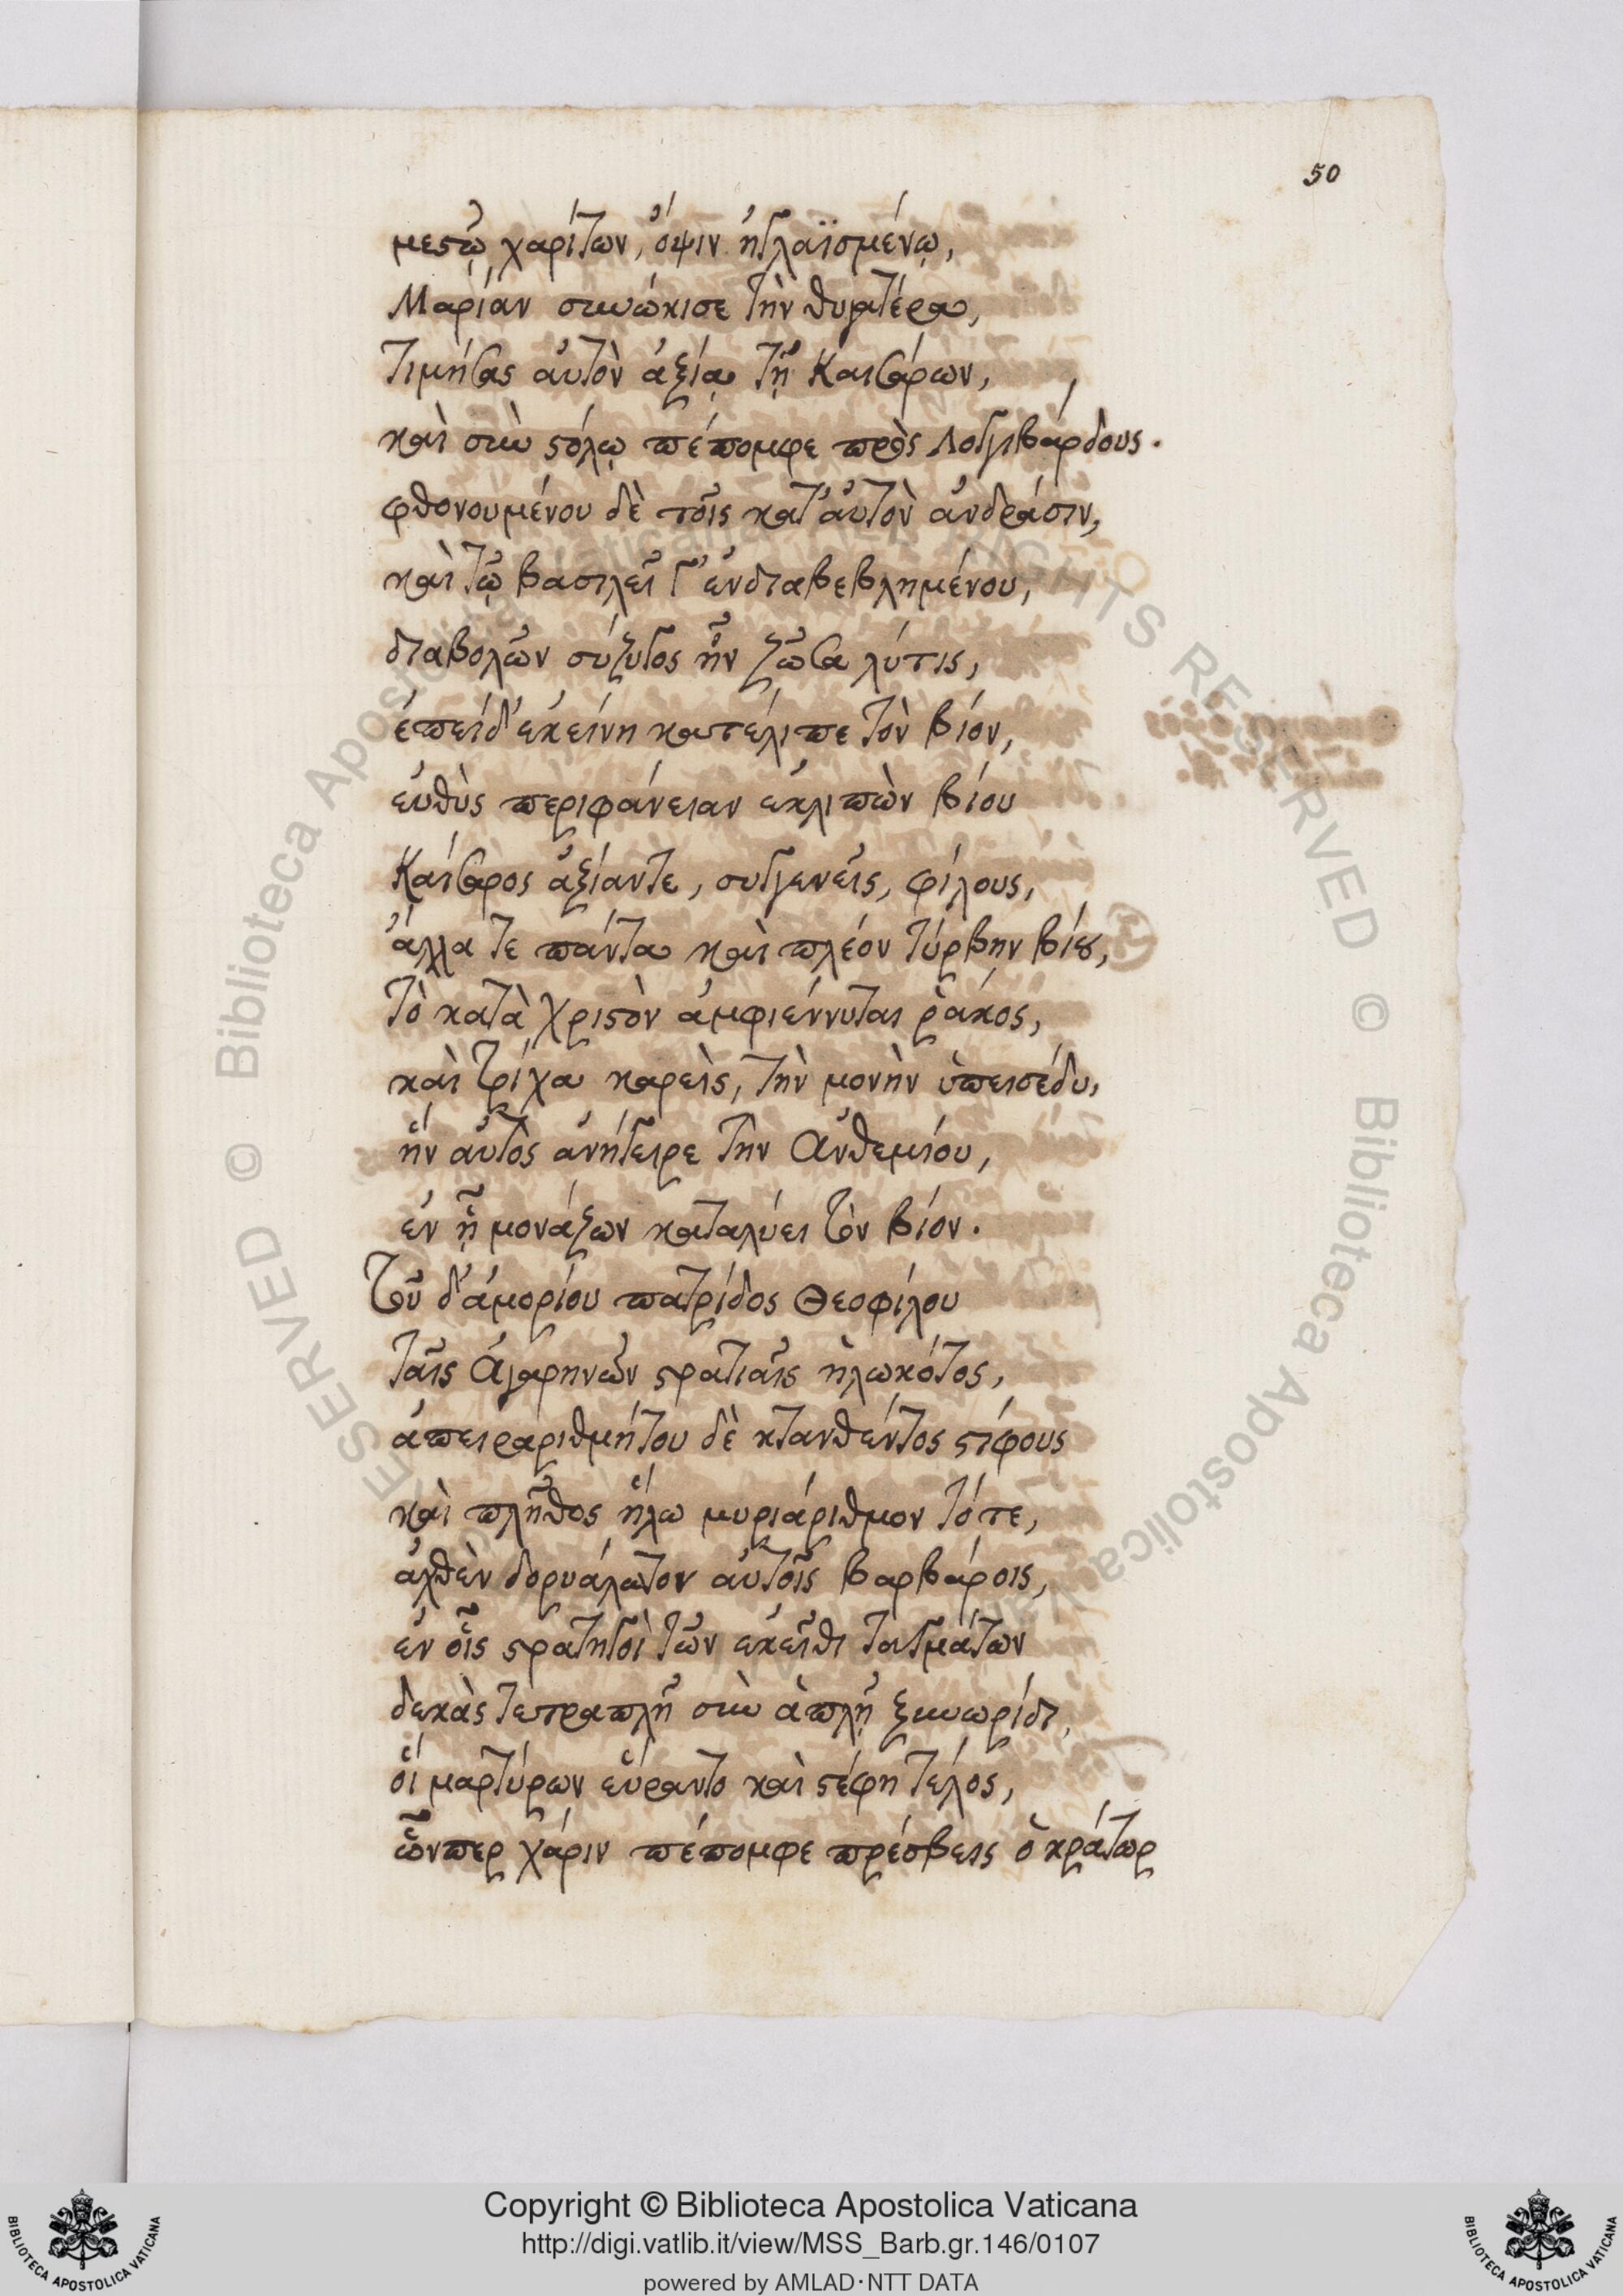 50
μεστῷ χαρίτων, ὄψιν ἠγλαϊσμένῳ,
Μαρίαν συνώκισε τὴν θυγατέρα,
τιμήσας αὐτὸν ἀξίᾳ τῇ Καισάρων,
καὶ σὺν στόλῳ πέπομφε πρὸς Λογγιβάρδους.
φθονουμένου δὲ τοῖς κατ' αὐτὸν ἀνδράσιν,
καὶ τῷ βασιλεῖ γ' ἐνδιαβεβλημένου,
διαβολῶν σύζυγος ἦν ζῶσα λύτις,
ἐπεὶ δ' ἐκείνη κατέλιπε τὸν βίον,
εὐθὺς περιφάνειαν ἐκλιπὼν βίου
Καίσαρος ἀξίαντε, συγγενεῖς, φίλους,
ἄλλα τε πάντα καὶ πλέον τύρβην βίου,
τὸ κατὰ Χριστὸν ἀμφιέννυται ῥάκος,
καὶ τρίχα καρεὶς, τὴν μονὴν ὑπεισέδυ,
ἣν αὐτὸς ἀνήγειρε τὴν Ἀνθεμίου,
ἐν ᾗ μονάζων καταλύει τὸν βίον.
Τοῦ δ' ἀμορίου πατρίδος Θεοφίλου
ταῖς Ἀγαρηνῶν στρατιαῖς ἡλωκότος,
ἀπειραριθμήτου δὲ κτανθέντος στίφους
καὶ πλῆθος ἥλω μυριάριθμον τότε,
ἀχθὲν δορυάλωτον αὐτοῖς βαρβάροις,
ἐν οἷς στρατηγοὶ τῶν ἐκεῖθι ταγμάτων
δεκὰς τετραπλῆ σὺν ἁπλῇ ξυνωρίδι,
οἳ μαρτύρων εὕραντο καὶ στέφη τέλος,
ὧνπερ χάριν πέπομφε πρέσβεις ὁ κράτωρ
Copyright © Biblioteca Apostolica Vaticana
http://digi.vatlib.it/view/MSS_Barb.gr.146/0107
powered by AMLAD·NTT DATA
BIBLIOTECA APOSTOLICA VATICANA
BIBLIOTECA APOSTOLICA VATICANA